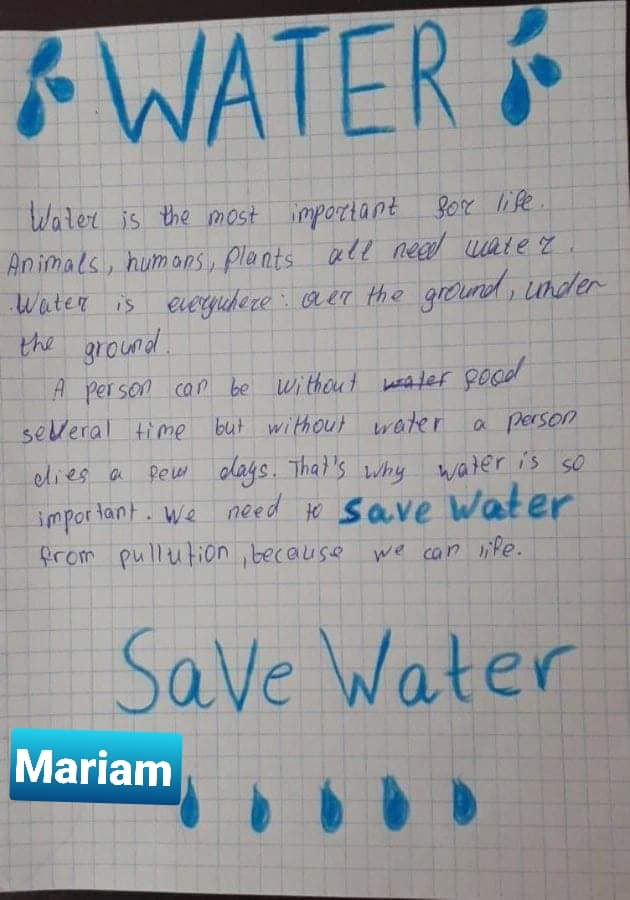 WATER
Water is the most important for life.
Animals, humans, plants all need water.
Water is everywhere: over the ground, under
the ground.
A person can be without water food
several time but without water a person
dies a few days. That's why water is so
important. We need to save water
from pullution, because we can life.
Save Water
Mariam